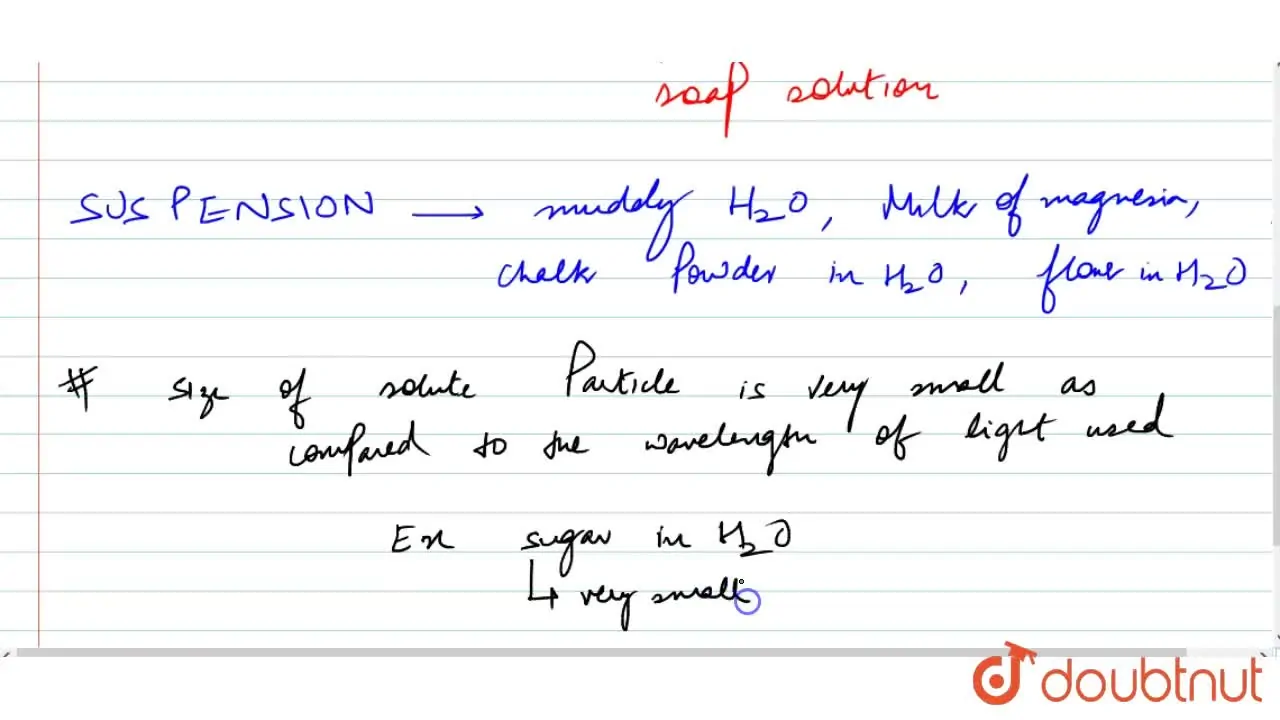 soap solution
SUSPENSION → muddy H2O, Milk of magnesia,
chalk Powder in H2O, flour in H2O
# size of solute Particle is very small as
compared to the wavelength of light used
Ex sugar in H2O
↳ very small
doubtnut